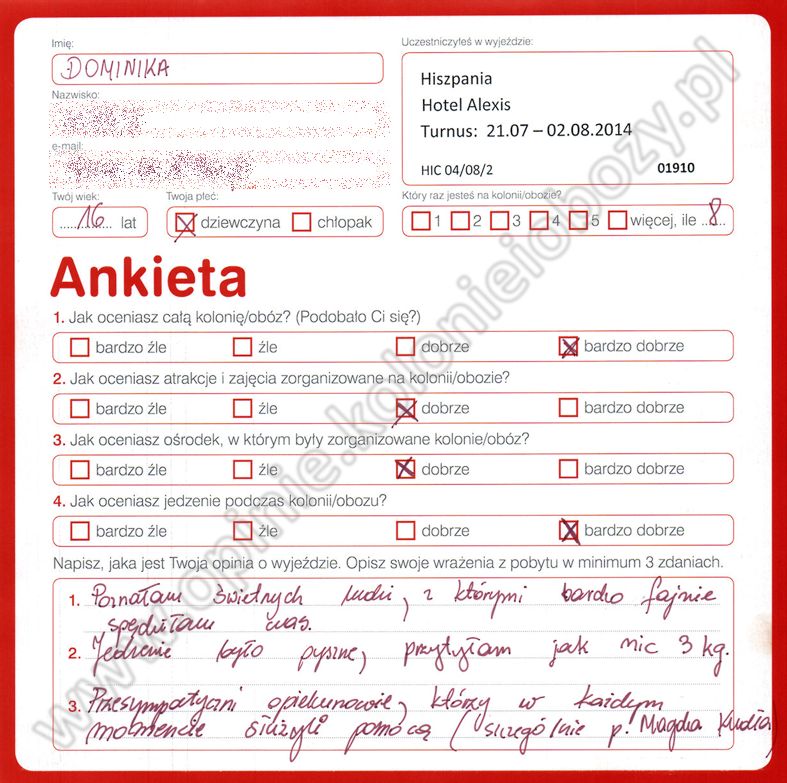 Imię:
DOMINIKA
Nazwisko:
e-mail:
Twój wiek:
16 lat
Twoja płeć:
dziewczyna chłopak
Uczestniczyłeś w wyjeździe:
Hiszpania
Hotel Alexis
Turnus: 21.07 – 02.08.2014
HIC 04/08/2 01910
Który raz jesteś na kolonii/obozie?
1 2 3 4 5 więcej, ile 8
Ankieta
1. Jak oceniasz całą kolonię/obóz? (Podobało Ci się?)
bardzo źle źle dobrze bardzo dobrze
2. Jak oceniasz atrakcje i zajęcia zorganizowane na kolonii/obozie?
bardzo źle źle dobrze bardzo dobrze
3. Jak oceniasz ośrodek, w którym były zorganizowane kolonie/obóz?
bardzo źle źle dobrze bardzo dobrze
4. Jak oceniasz jedzenie podczas kolonii/obozu?
bardzo źle źle dobrze bardzo dobrze
Napisz, jaka jest Twoja opinia o wyjeździe. Opisz swoje wrażenia z pobytu w minimum 3 zdaniach.
1. Poznałam świetnych ludzi, z którymi bardzo fajnie
spędziłam czas.
2. Jedzenie było pyszne, przytyłam jak nic 3 kg.
3. Przesympatyczni opiekunowie, którzy w każdym
momencie służyli pomocą (szczególnie p. Magda
www.opinie.kolonieiobozy.pl